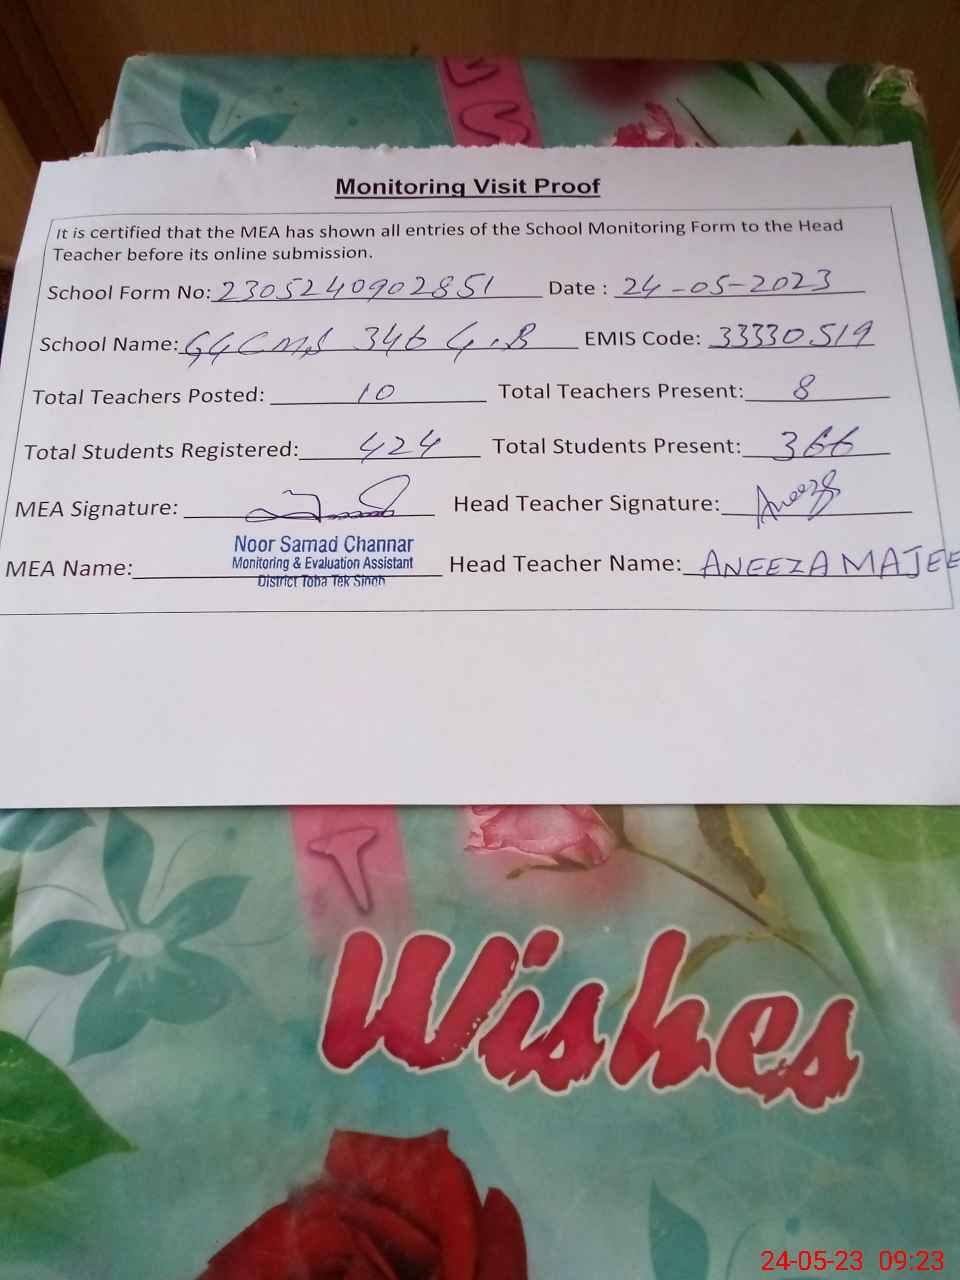 Monitoring Visit Proof
It is certified that the MEA has shown all entries of the School Monitoring Form to the Head
Teacher before its online submission.
School Form No: 2305240902851 Date : 24-05-2023
School Name: GGCMS 346 G.B EMIS Code: 33330519
Total Teachers Posted: 10 Total Teachers Present: 8
Total Students Registered: 424 Total Students Present: 366
MEA Signature: Head Teacher Signature: Aneeza
Noor Samad Channar
Monitoring & Evaluation Assistant
MEA Name: Head Teacher Name: ANEEZA MAJEE
District Toba Tek Singh
Wishes
24-05-23 09:23